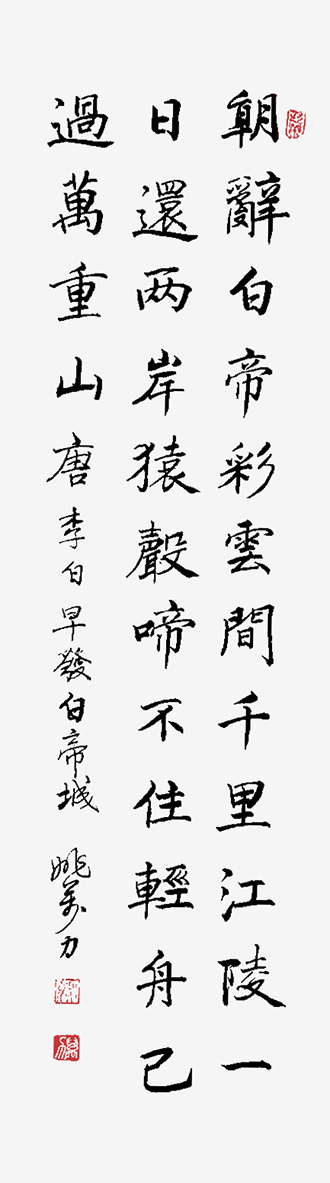 朝辭白帝彩雲間千里江陵一
日還两岸猿聲啼不住輕舟已
過萬重山唐李白早發白帝城 姚萬力